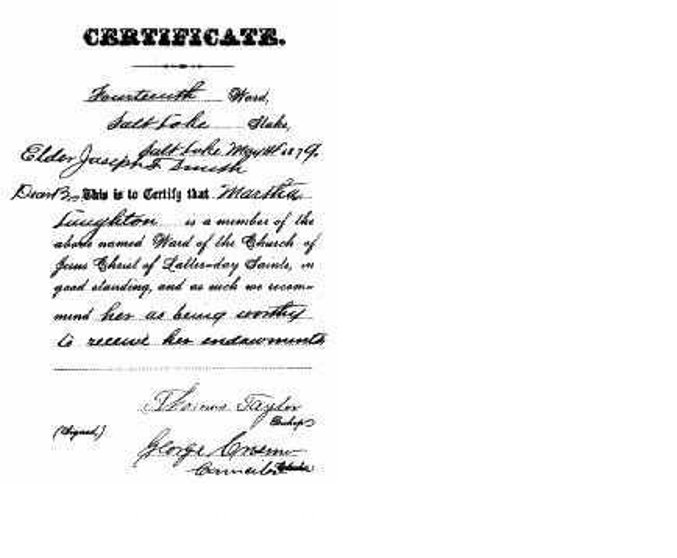 CERTIFICATE.
Fourteenth Ward,
Salt Lake Stake,
Salt Lake May 1879.
Elder Joseph F Smith
Dear Bro This is to Certify that Martha
Laughton is a member of the
above named Ward of the Church of
Jesus Christ of Latter-day Saints, in
good standing, and as such we recom-
mend her as being worthy
to receive her endowments
Thomas Taylor
Bishop
(Signed.)
George
Councilor